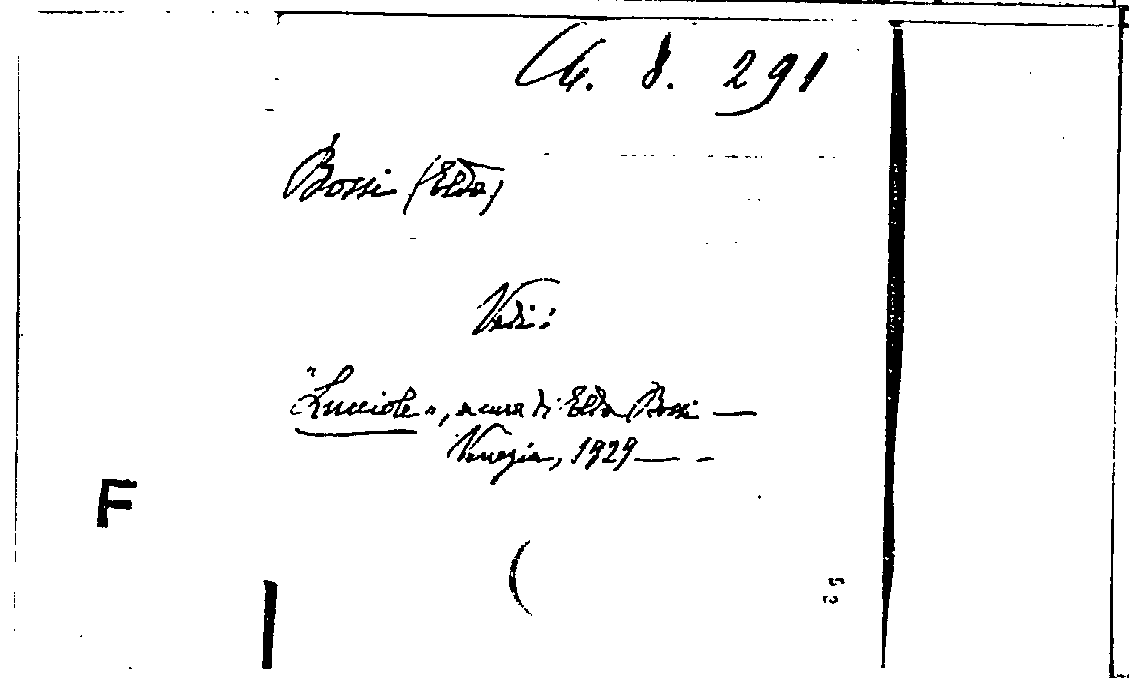 8. 291
Bossi (Elda)
Vedi:
"Lucciole", a cura di Elda Bossi —
Venezia, 1929 — -
F